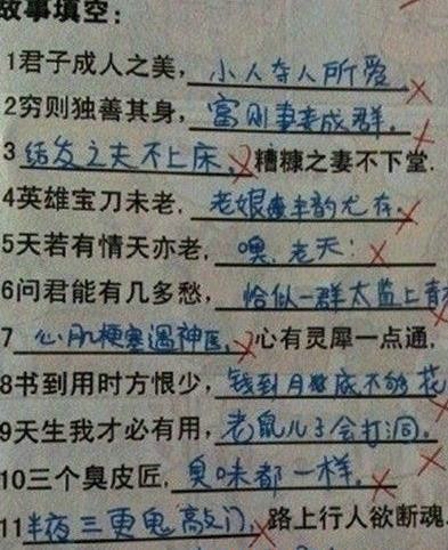 故事填空：
1君子成人之美，小人夺人所爱。
2穷则独善其身，富则妻妾成群。
3结发之夫不上床，糟糠之妻不下堂.
4英雄宝刀未老，老娘丰韵尤存.
5天若有情天亦老，噢，老天！
6问君能有几多愁，恰似一群太监上青
7心肌梗塞遇神医，心有灵犀一点通，
8书到用时方恨少，钱到月底不够花
9天生我才必有用，老鼠儿子会打洞.
10三个臭皮匠，臭味都一样.
11半夜三更鬼敲门，路上行人欲断魂.